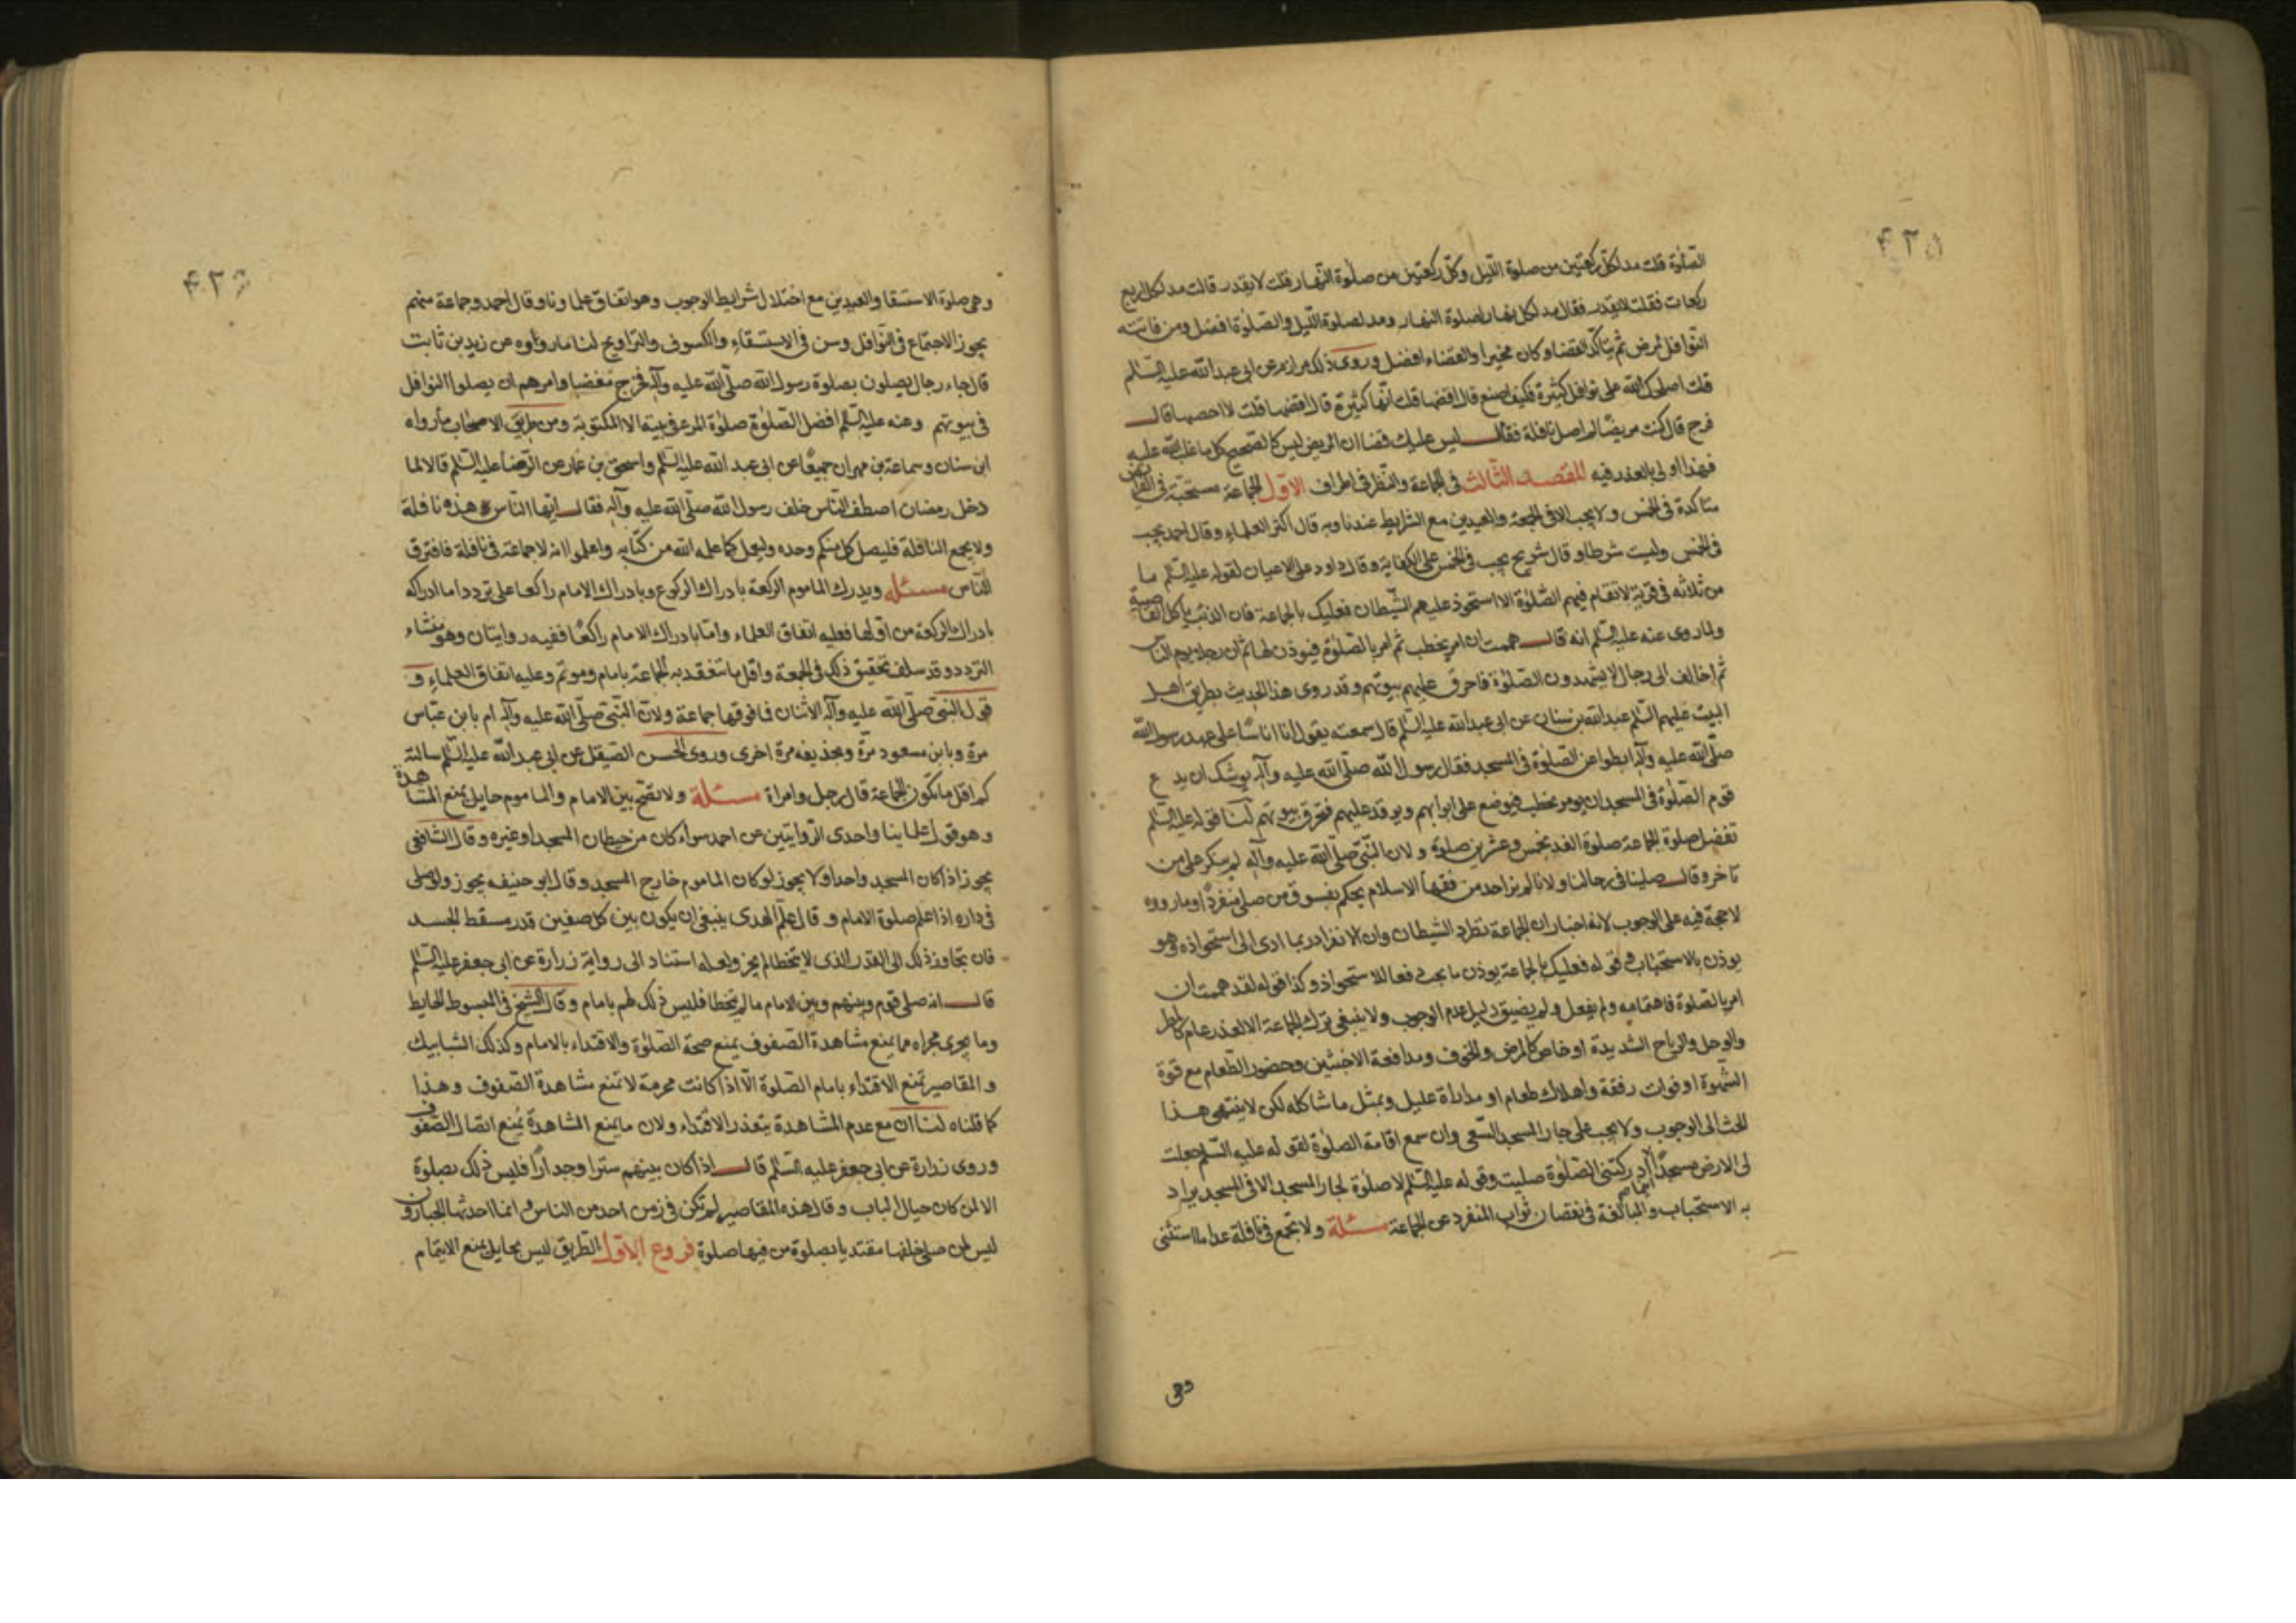 ۴۲۵
الصلوة قلت مد لكل ركعتين من صلوة الليل وكل ركعتين من صلوة النهار قلت لا يقدر قالت مد لكل اربع
ركعات فقلت لا يقدر فقال مد لكل نهار لصلوة النهار ومد لصلوة الليل والصلوة افضل ومن فاتته
النوافل لمرض ثم يتأكد القضا وكان مخيرا والقضاء افضل وروى ذلك مرازم عن ابى عبد الله عليه السلم
قلت اصلحك الله على نوافل كثيرة فكيف اصنع قال اقضها قلت انها كثيرة قال اقضها قلت لا احصيها قال
فرح قال كنت مريضا لم اصل نافلة فقال ليس عليك قضا ان المريض ليس كالصحيح كل ما غلب الله عليه
فهذا اولى بالعذر فيه المقصد الثالث فى الجماعة والنظر فى اطراف الاول الجماعة مستحبة فى الفرايض
متاكدة فى الخمس ولا يجب الا فى الجمعة والعيدين مع الشرايط عندنا وبه قال اكثر العلماء وقال احمد يجب
فى الخمس وليست شرطا وقال شريح يجب فى الخمس على الكفاية وقال داود على الاعيان لقوله عليه السلم ما
من ثلاثه فى قرية لا تقام فيهم الصلوة الا استحوذ عليهم الشيطان فعليك بالجماعة فان الذئب ياكل القاصية
ولما روى عنه عليه السلم انه قال هممت ان امر بحطب ثم امر بالصلوة فيوذن لها ثم ان رجلا يوم الناس
ثم اخالف الى رجال لا يشهدون الصلوة فاحرق عليهم بيوتهم وقد روى هذا الحديث بطريق اهل
البيت عليهم السلم عبد الله بن سنان عن ابى عبد الله عليه السلم قال سمعته يقول ان اناسا على عهد رسول الله
صلى الله عليه وآله ابطوا عن الصلوة فى المسجد فقال رسول الله صلى الله عليه وآله يوشك ان يدع
قوم الصلوة فى المسجد ان يومر بحطب فيوضع على ابوابهم ويوقد عليهم فتحرق بيوتهم لنا قوله عليه السلم
تفضل صلوة الجماعة صلوة الفذ بخمس وعشرين صلوة ولان النبى صلى الله عليه وآله لم ينكر على من
تاخر وقال صلينا فى رحالنا ولانا لم نر احد من فقها الاسلام يحكم بفسوق من صلى منفردا وما رووه
لا حجة فيه على الوجوب لانه اخبار ان الجماعة تطرد الشيطان وان الانفراد ربما ادى الى استحواذه وهو
يوذن بالاستحباب وقوله فعليك بالجماعة يوذن ما يجب دفعا للاستحواذ وكذا قوله لقد هممت ان
امر بالصلوة فاهتمامه ولم يفعل ولم يضيق دليل عدم الوجوب ولا ينبغى ترك الجماعة الا لعذر عام كالمطر
والوحل والرياح الشديدة او خاص كالمرض والخوف ومدافعة الاخبثين وحضور الطعام مع قوة
الشهوة او فوات رفقة واهلاك طعام او مداراة عليل وبمثل ما شاكله لكن لا ينتهى هذا
الحث الى الوجوب ولا يجب على جار المسجد السعى وان سمع اقامة الصلوة لقوله عليه السلم جعلت
لى الارض مسجدا اينما ادركتنى الصلوة صليت وقوله عليه السلم لا صلوة لجار المسجد الا فى المسجد يراد
به الاستحباب والمبالغة فى نقصان ثواب المنفرد عن الجماعة مسئلة ولا تجمع فى نافلة عدا ما استثنى
وهى
۴۲۶
وهى صلوة الاستسقا والعيدين مع اختلال شرايط الوجوب وهو اتفاق علماونا وقال احمد وجماعة منهم
يجوز الاجتماع فى النوافل وسن فى الاستسقاء والكسوف والتراويح لنا ما رواوه عن زيد بن ثابت
قال جاء رجال يصلون بصلوة رسول الله صلى الله عليه وآله فخرج مغضبا وامرهم ان يصلوا النوافل
فى بيوتهم وعنه عليه السلم افضل الصلوة صلوة المرء فى بيته الا المكتوبة ومن طريق الاصحاب ما رواه
ابن سنان وسماعة بن مهران جميعا عن ابى عبد الله عليه السلم واسحق بن عمار عن الرضا عليه السلم قالا لما
دخل رمضان اصطف الناس خلف رسول الله صلى الله عليه وآله فقال ايها الناس هذه نافلة
ولا يجمع النافلة فليصل كل منكم وحده وليعل كما علمه الله من كتابه واعلموا انه لا جماعة فى نافلة فافترق
الناس مسئلة ويدرك الماموم الركعة بادراك الركوع وبادراك الامام راكعا على تردد اما ادراكه
بادراك الركعة من اولها فعليه اتفاق العلماء واما بادراك الامام راكعا ففيه روايتان وهو منشاء
التردد وقد سلف تحقيق ذلك فى الجمعة واقل ما تنعقد به الجماعة بامام وموتم وعليه اتفاق العلماء و
قول النبى صلى الله عليه وآله الاثنان فما فوقها جماعة ولان النبى صلى الله عليه وآله ام بابن عباس
مرة وبابن مسعود مرة وبحذيفه مرة اخرى وروى الحسن الصيقل عن ابى عبد الله عليه السلم سالته
كم اقل ما تكون الجماعة قال رجل وامراة مسئلة ولا تصح بين الامام والماموم حايل يمنع المشاهدة
وهو قول علماينا واحدى الروايتين عن احمد سواء كان من حيطان المسجد او غيره وقال الشافعى
يجوز اذا كان المسجد واحدا ولا يجوز لو كان الماموم خارج المسجد وقال ابو حنيفه يجوز ولو صلى
فى داره اذا علم صلوة الامام وقال علم الهدى ينبغى ان يكون بين كل صفين قدر مسقط الجسد
فان تجاوز ذلك الى القدر الذى لا يتخطا لم يجز ولعله استناد الى رواية زرارة عن ابى جعفر عليه السلم
قال ان صلى قوم وبينهم وبين الامام ما لا يتخطا فليس ذلك لهم بامام وقال الشيخ فى المبسوط الحايط
وما يجرى مجراه مما يمنع مشاهدة الصفوف يمنع صحة الصلوة والاقتداء بالامام وكذلك الشبابيك
والمقاصير تمنع الاقتداء بامام الصلوة الا اذا كانت مخرمة لا تمنع مشاهدة الصفوف وهذا
كما قلناه لنا ان مع عدم المشاهدة يتعذر الاقتداء ولان ما يمنع المشاهدة يمنع اتصال الصفوف
وروى زرارة عن ابى جعفر عليه السلم قال اذا كان بينهم سترا وجدارا فليس ذلك بصلوة
الا لمن كان حيال الباب وقال هذه المقاصير لم تكن فى زمن احد من الناس وانما احدثها الجبارون
ليس لمن صلى خلفها مقتديا بصلوة من فيها صلوة فروع الاول الطريق ليس بحايل يمنع الايتمام